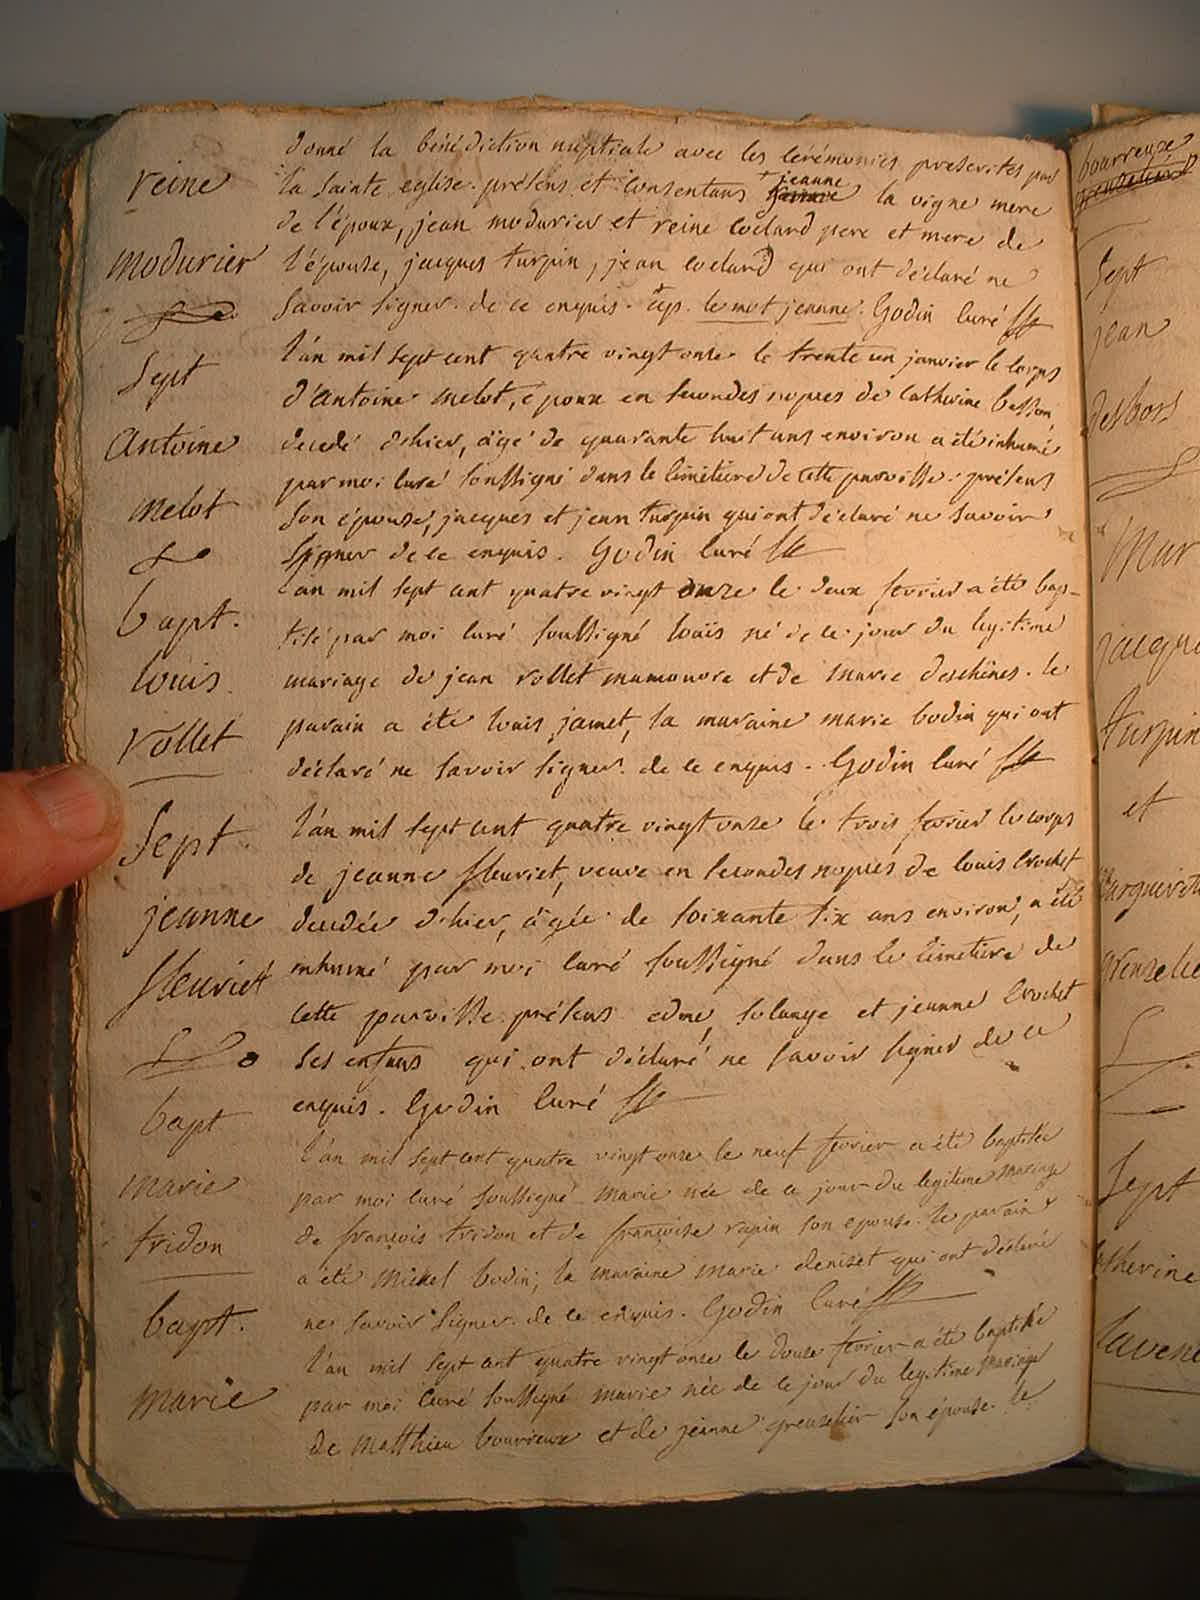 donné la bénédiction nuptiale avec les cérémonies prescrites par
reine
la sainte eglise. présens et consentans + jeanne la vigne mere
de l'époux, jean modurier et reine coclard pere et mere de
modurier
l'épouse, jacques turpin, jean coclard qui ont déclaré ne
savoir signer. de ce enquis. + ap. le mot jeanne. Godin curé
Sept
l'an mil sept cent quatre vingt onze le trente un janvier le corps
d'antoine melot, epoux en secondes nopces de catherine besson
antoine
decedé d'hier, âgé de quarante huit ans environ a été inhumé
par moi curé soussigné dans le cimetiere de cette paroisse. présens
melot
son épouse, jacques et jean turpin qui ont déclaré ne savoir
signer de ce enquis. Godin curé
bapt.
l'an mil sept cent quatre vingt onze le deux fevrier a été bap-
tisé par moi curé soussigné louis né de ce jour du legitime
louis
mariage de jean rollet manouvre et de marie deschênes. le
rollet
parain a été louis jamet, la maraine marie bodin qui ont
déclaré ne savoir signer. de ce enquis. Godin curé
Sept.
l'an mil sept cent quatre vingt onze le trois fevrier le corps
de jeanne fleuriet, veuve en secondes nopces de louis crochet
jeanne
decedée d'hier, âgée de soixante six ans environ, a été
fleuriet
inhumé par moi curé soussigné dans le cimetiere de
cette paroisse. présens edme, solange et jeanne crochet
ses enfans qui ont déclaré ne savoir signer de ce
enquis. Godin curé
bapt
l'an mil sept cent quatre vingt onze le neuf fevrier a été baptisée
marie
par moi curé soussigné marie née de ce jour du legitime mariage
tridon
de françois tridon et de françoise rapin son epouse. le parain
a été michel bodin, la maraine marie deniset qui ont déclaré
ne savoir signer. de ce enquis. Godin curé
bapt.
l'an mil sept cent quatre vingt onze le douze fevrier a été baptisée
marie
par moi curé soussigné marie née de ce jour du legitime mariage
de matthieu bourreux et de jeanne greuzelier son épouse. le
bourreuxe
Sept
jean
desbois
Mar
jacque
turpin
et
marguerite
greuzelie
Sept
catherine
lavene